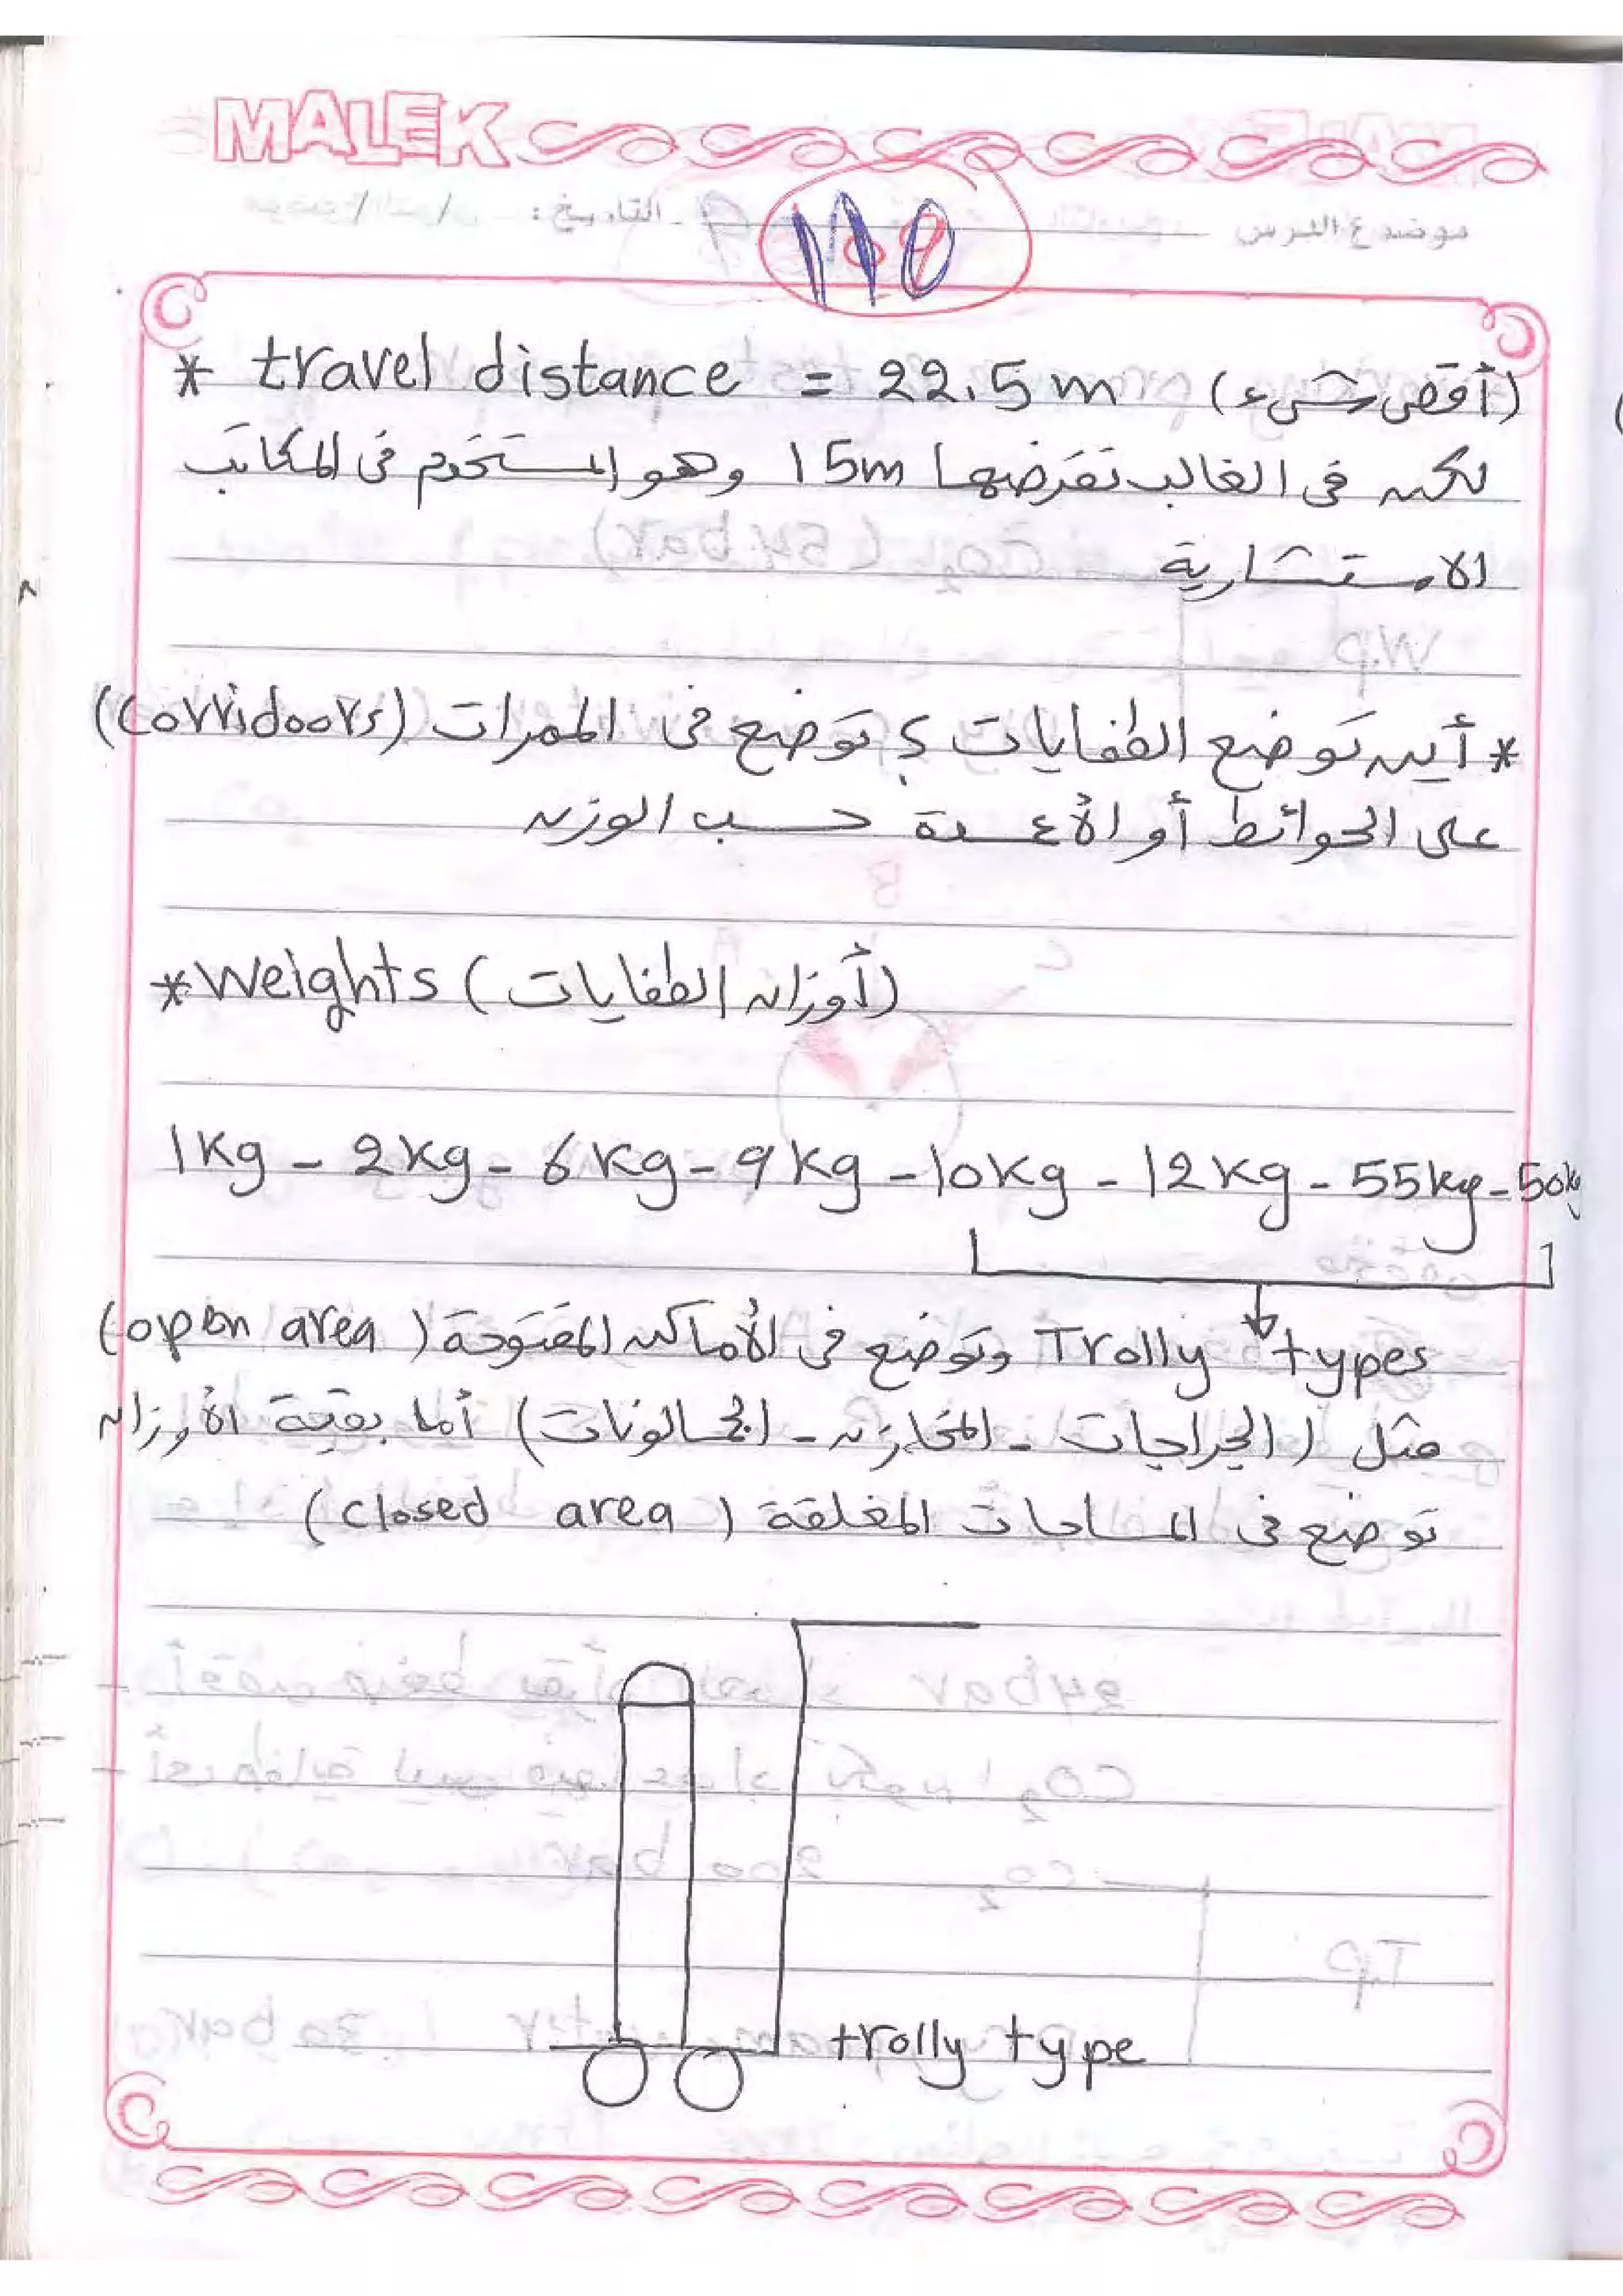 MALEK
موضوع الدرس التاريخ : / /
110
* travel distance = 22.5 m (أقصى شىء)
لكن فى الغالب نفرضها 15m وهو المستخدم فى المكاتب
الاستشارية
* أين توضع الطفايات ؟ توضع فى الممرات (Corridoors)
على الحوائط أو الأعمدة حسب الوزن
* Weights (أوزان الطفايات)
1kg - 2kg - 6kg - 9kg - 10kg - 12kg - 55kg - 50kg
Trolly types وتوضع فى الأماكن المفتوحة (open area)
مثل (الجراجات - المخازن - الجمالونات) أما بقية الأوزان
توضع فى المساحات المغلقة (closed area)
trolly type